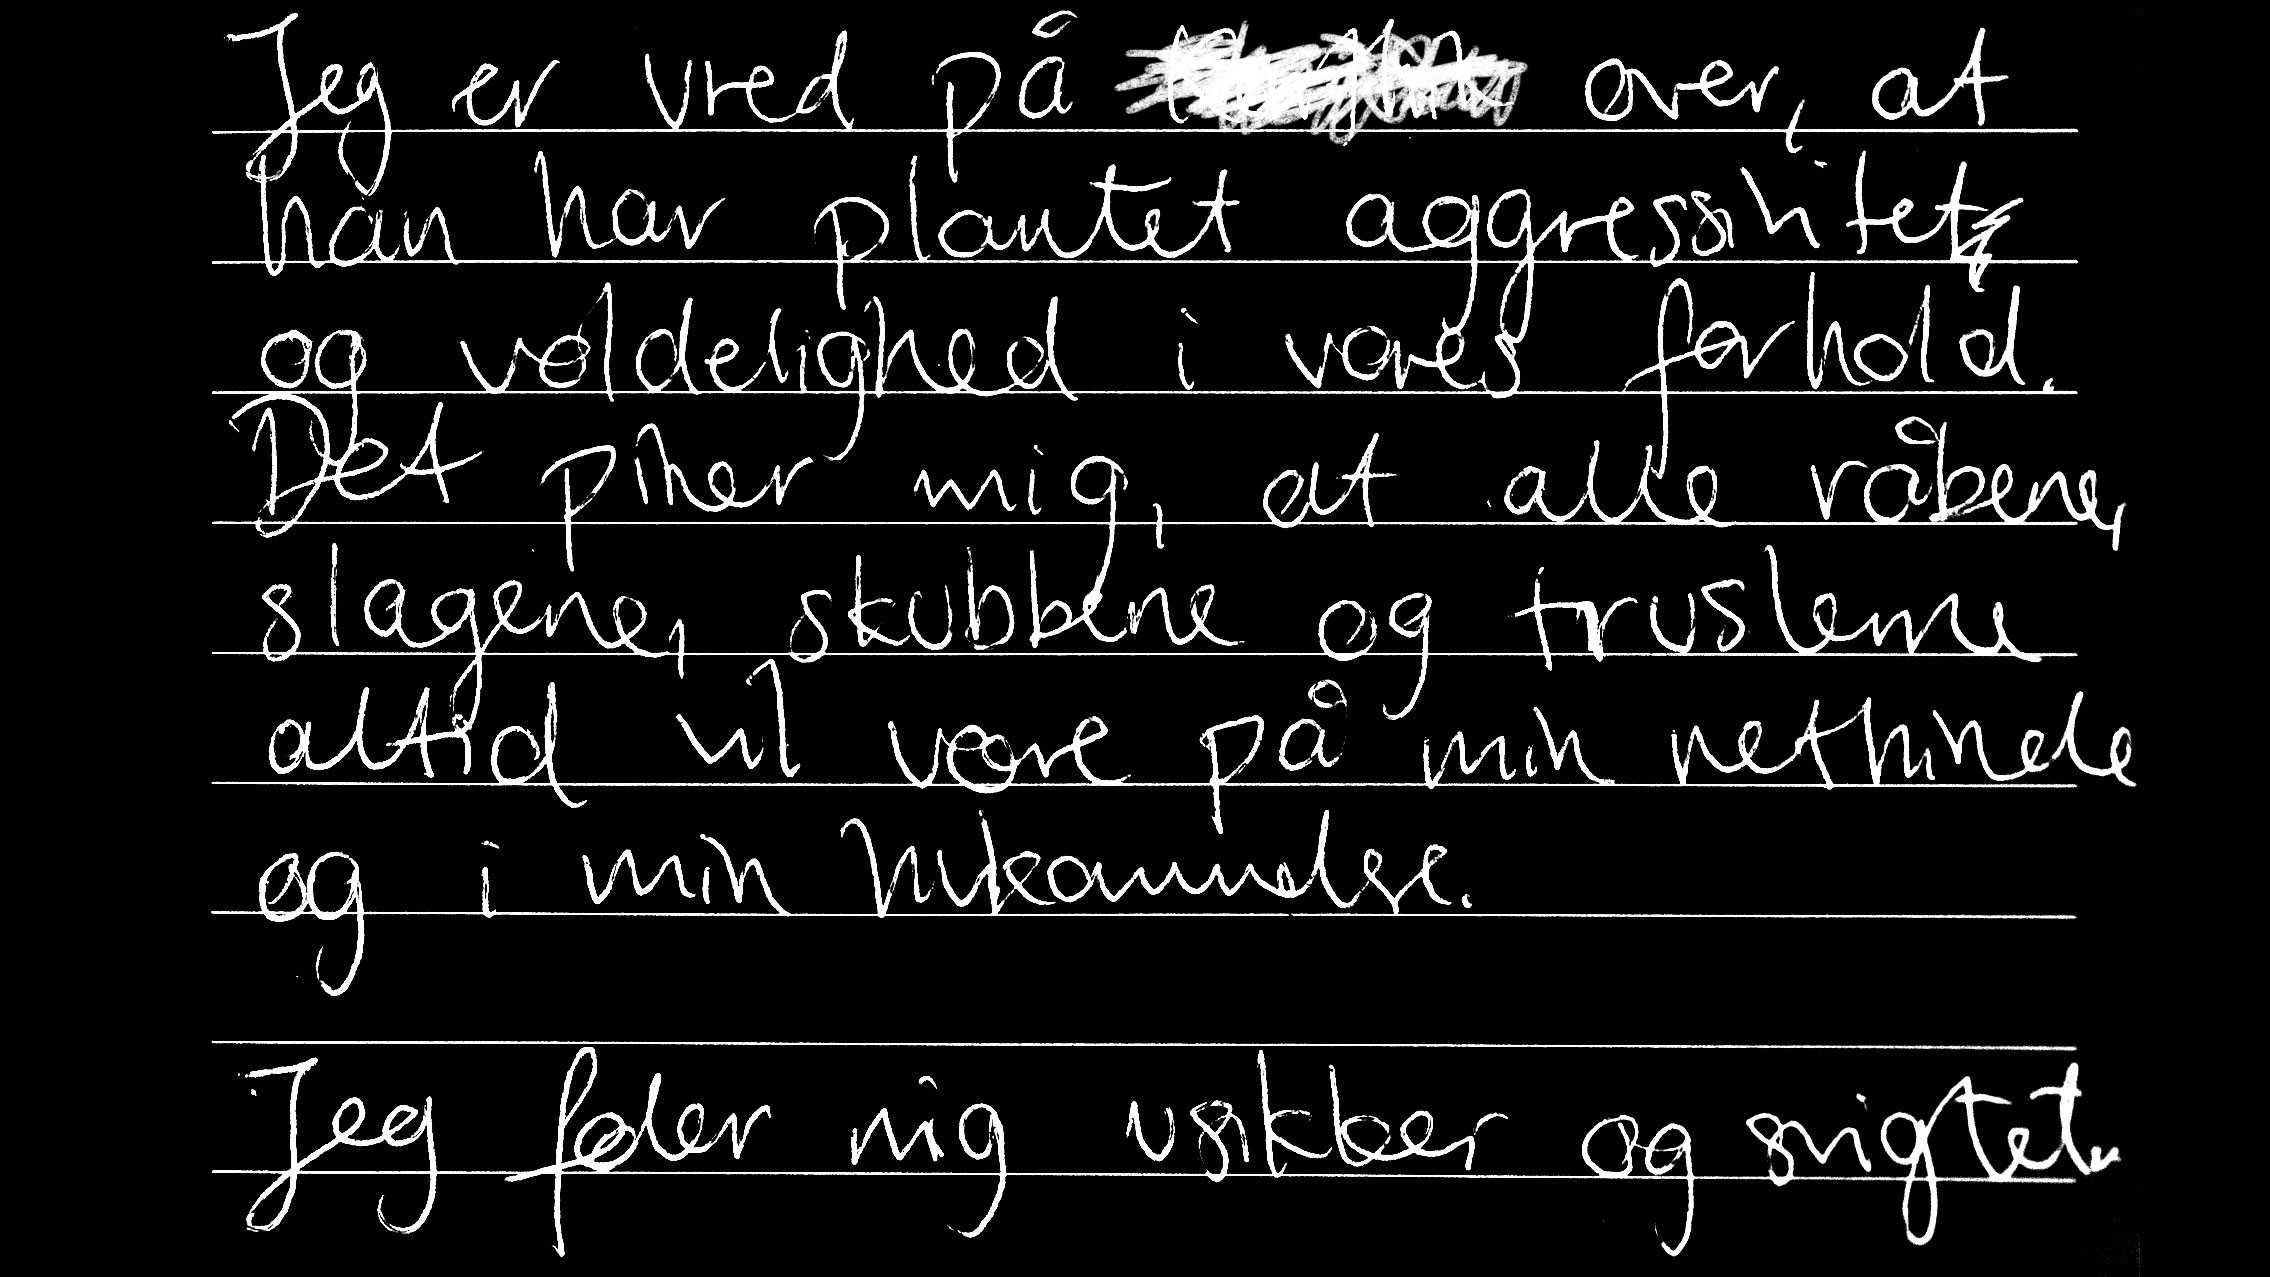 Jeg er vred på over, at
han har plantet aggressivitet
og voldelighed i vores forhold.
Det piner mig, at alle råbene,
slagene, skubbene og truslerne
altid vil være på min nethinde
og i min hukommelse.
Jeg føler mig usikker og svigtet.